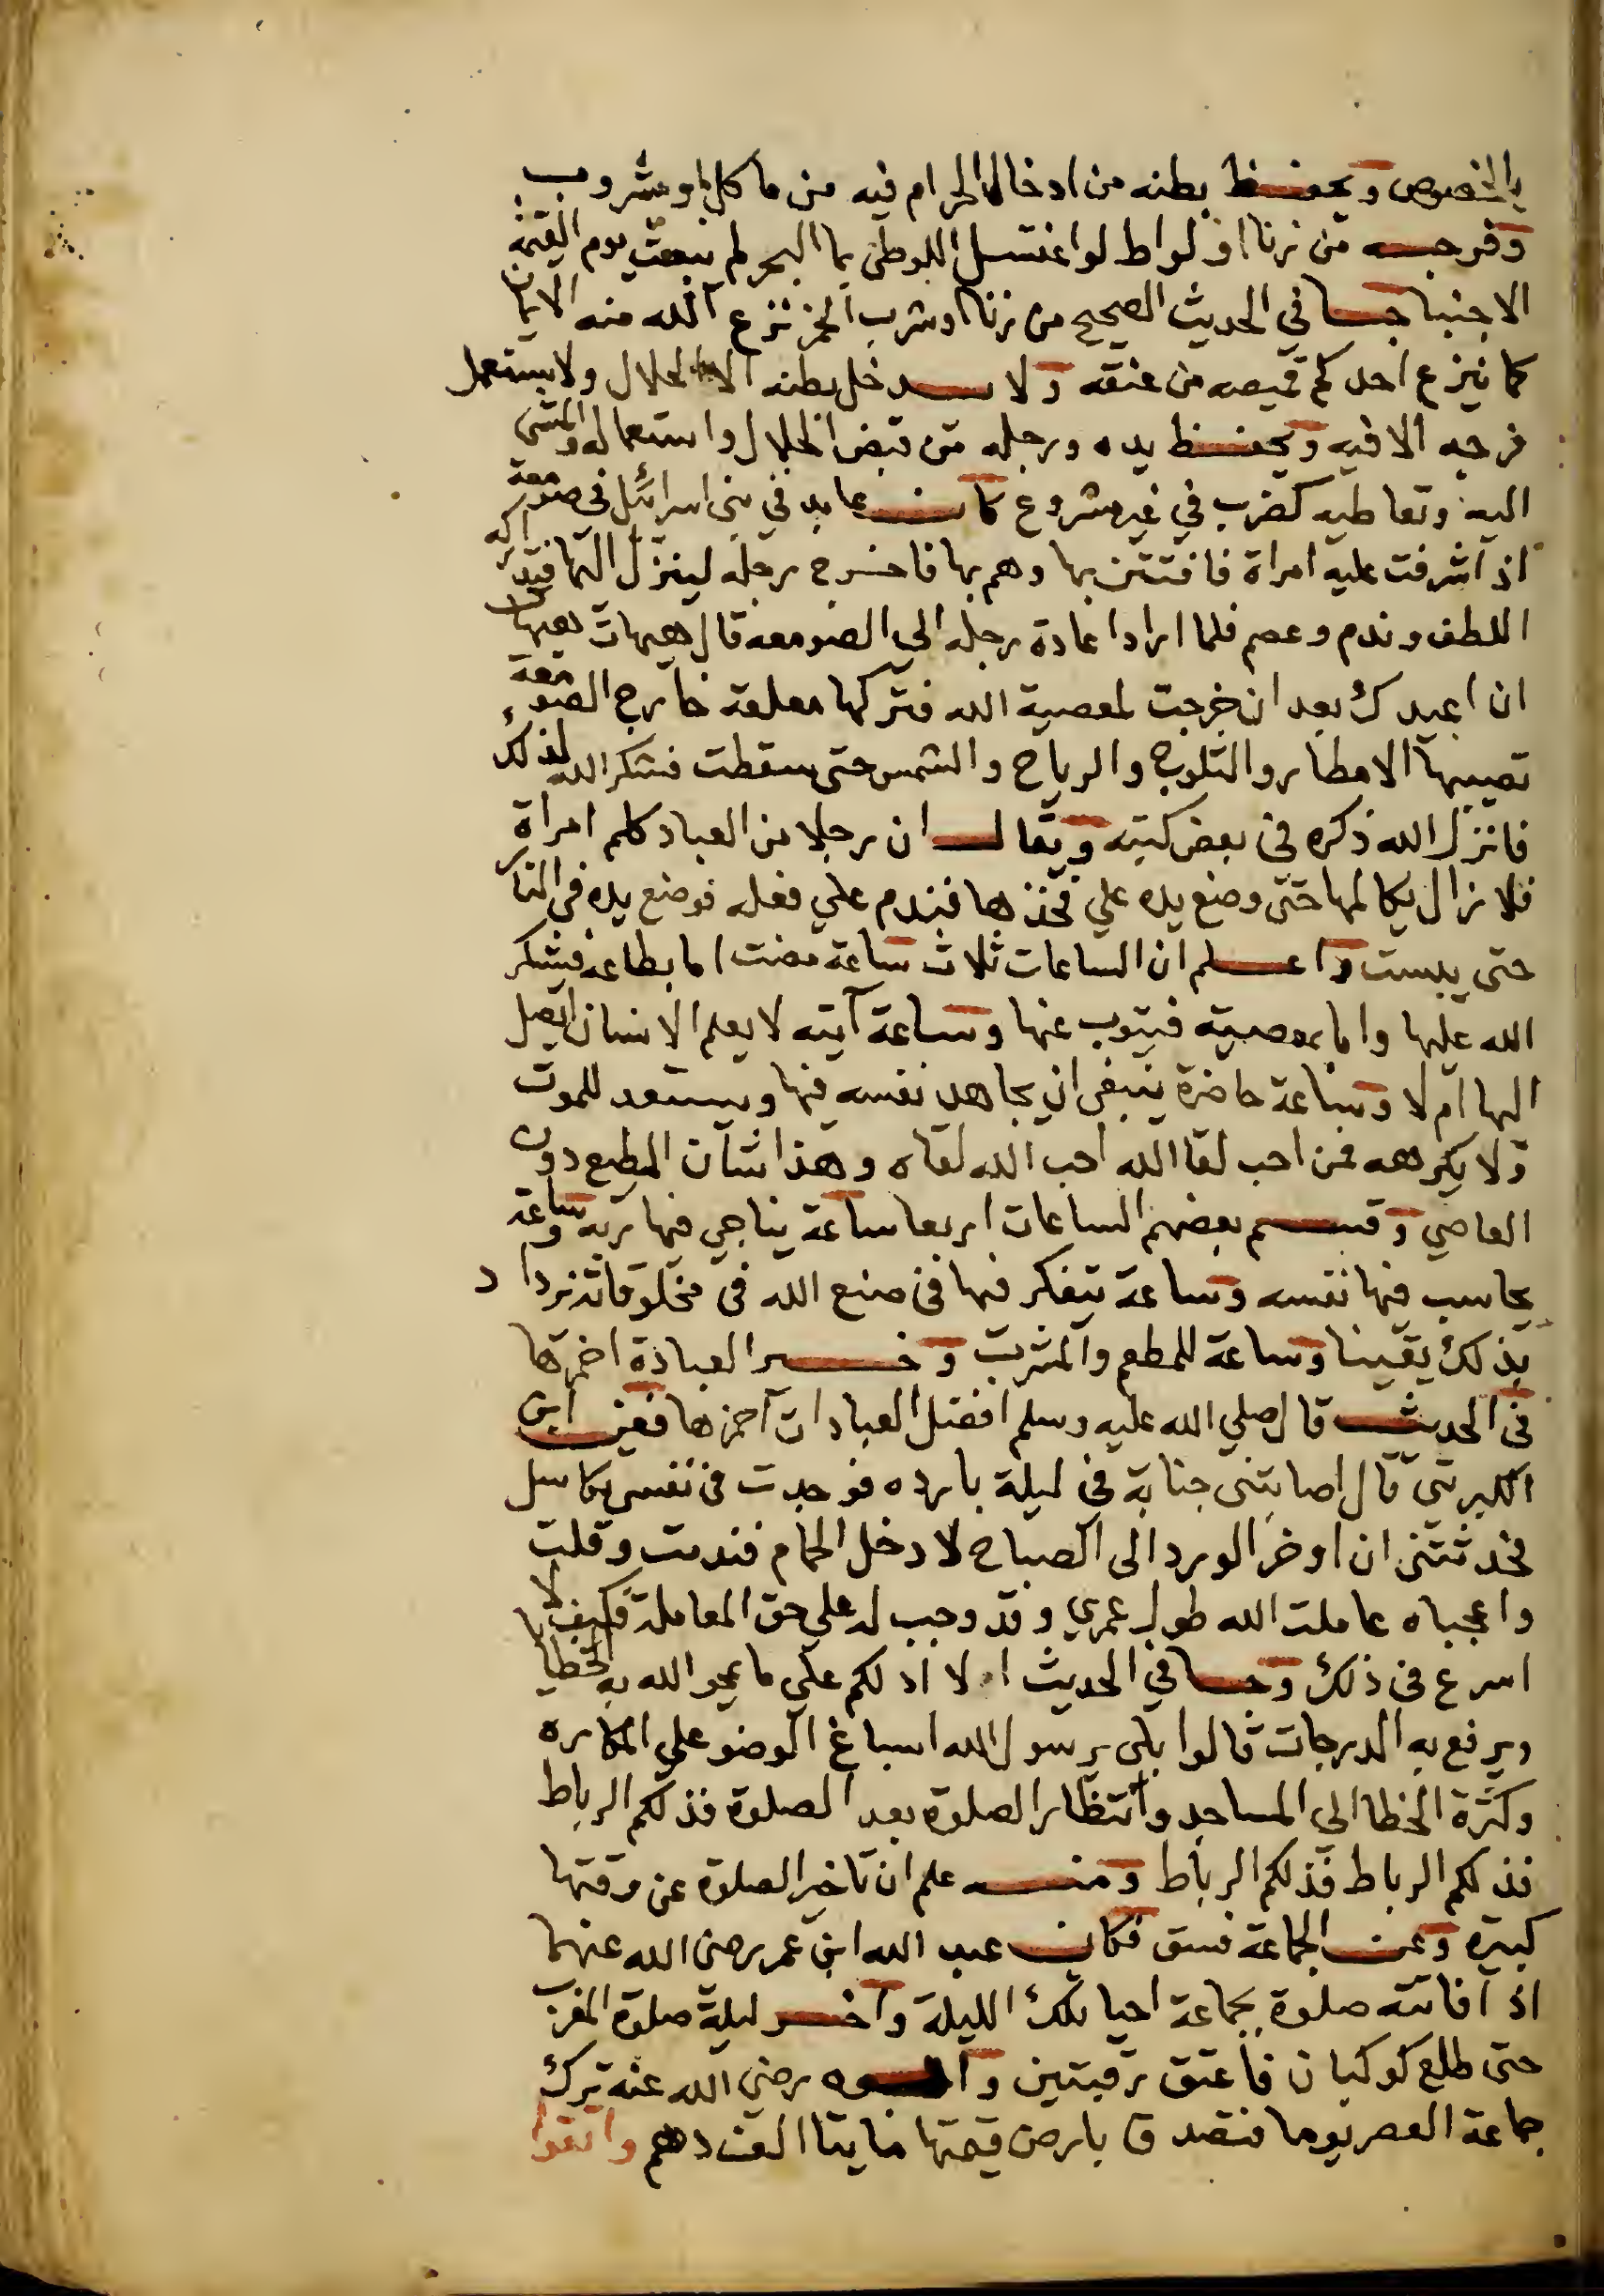 بالخصوص ويحفظ بطنه من ادخال الحرام فيه من ماكل او مشروب
وفرجه من زنا او لواط لو اغتسل اللوطي بما البحر لم يبعث يوم القيمة
الا جنبا جا في الحديث الصحيح من زنا او شرب الخمر نزع الله منه الايمان
كما ينزع احدكم قميصه من عنقه ولا يدخل بطنه الا الحلال ولا يستعمل
فرجه الا فيه ويحفظ يده ورجله من قبض الحلال واستعماله والمشي
اليه وتعاطيه كضرب في غير مشروع كان عابد في بني اسرائيل في صومعة
اذ اشرفت عليه امراة فافتتن بها وهم بها فاخرج رجله لينزل اليها فتداركه
اللطف وندم وعصم فلما اراد اعادة رجله الى الصومعه قال هيهات هيهات
ان اعيدك بعد ان خرجت لمعصية الله فتركها معلقة خارج الصومعة
تصيبها الامطار والثلوج والرياح والشمس حتى سقطت فشكر الله لذلك
فانزل الله ذكره في بعض كتبه ويقال ان رجلا من العباد كلم امراة
فلا زال يكالمها حتى وضع يده علي فخذها فندم علي فعله فوضع يده في النار
حتى يبست واعلم ان الساعات ثلاث ساعة مضت اما بطاعة فيشكر
الله عليها واما بمعصية فيتوب عنها وساعة آتيه لا يعلم الانسان ايصل
اليها ام لا وساعة حاضرة ينبغي ان يجاهد نفسه فيها ويستعد للموت
ولا يكرهه فمن احب لقا الله احب الله لقاه وهذا شان المطيع دون
العاصي وقسم بعضهم الساعات اربعا ساعة يناجي فيها ربه وساعة
يحاسب فيها نفسه وساعة يتفكر فيها في صنع الله في مخلوقاته نزداد
بذلك يقينا وساعة للمطعم والمشرب وخير العبادة احمزها
في الحديث قال صلي الله عليه وسلم افضل العبادات آحمزها فعن ابن
الكبريتي قال اصابتني جنابة في ليلة بارده فوجدت في نفسي تكاسل
فحدثتني ان اوخر الورد الى الصباح لادخل الحمام فندمت وقلت
واعجباه عاملت الله طول عمري وقد وجب له علي حق المعاملة فكيف لا
اسرع في ذلك وجا في الحديث الا ادلكم علي ما يمحو الله به الخطايا
ويرفع به الدرجات قالوا بلى يرسول الله اسباغ الوضو علي المكاره
وكثرة الخطا الي المساجد وانتظار الصلوة بعد الصلوة فذلكم الرباط
فذلكم الرباط فذلكم الرباط ومنه علم ان تاخير الصلوة عن وقتها
كبيره وعن الجماعة فسق فكان عبد الله ابن عمر رضي الله عنهما
اذ افاتته صلوة بجماعة احيا تلك الليلة واخر ليلة صلوة المغرب
حتى طلع كوكبان فاعتق رقبتين وابوه رضي الله عنه ترك
جماعة العصر يوما فتصدق بارض قيمتها مايتا الف دهم واتقوا